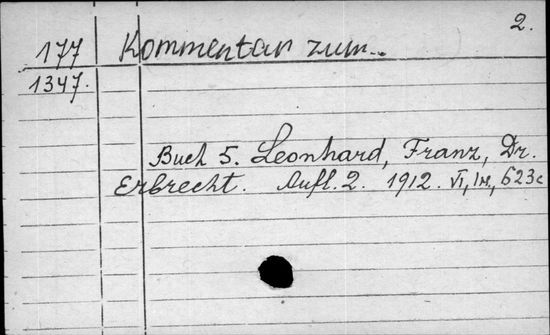 2.
177 Kommentar zum...
1347.
Buch 5. Leonhard, Franz, Dr.
Erbrecht. Aufl. 2. 1912. VI, 623c